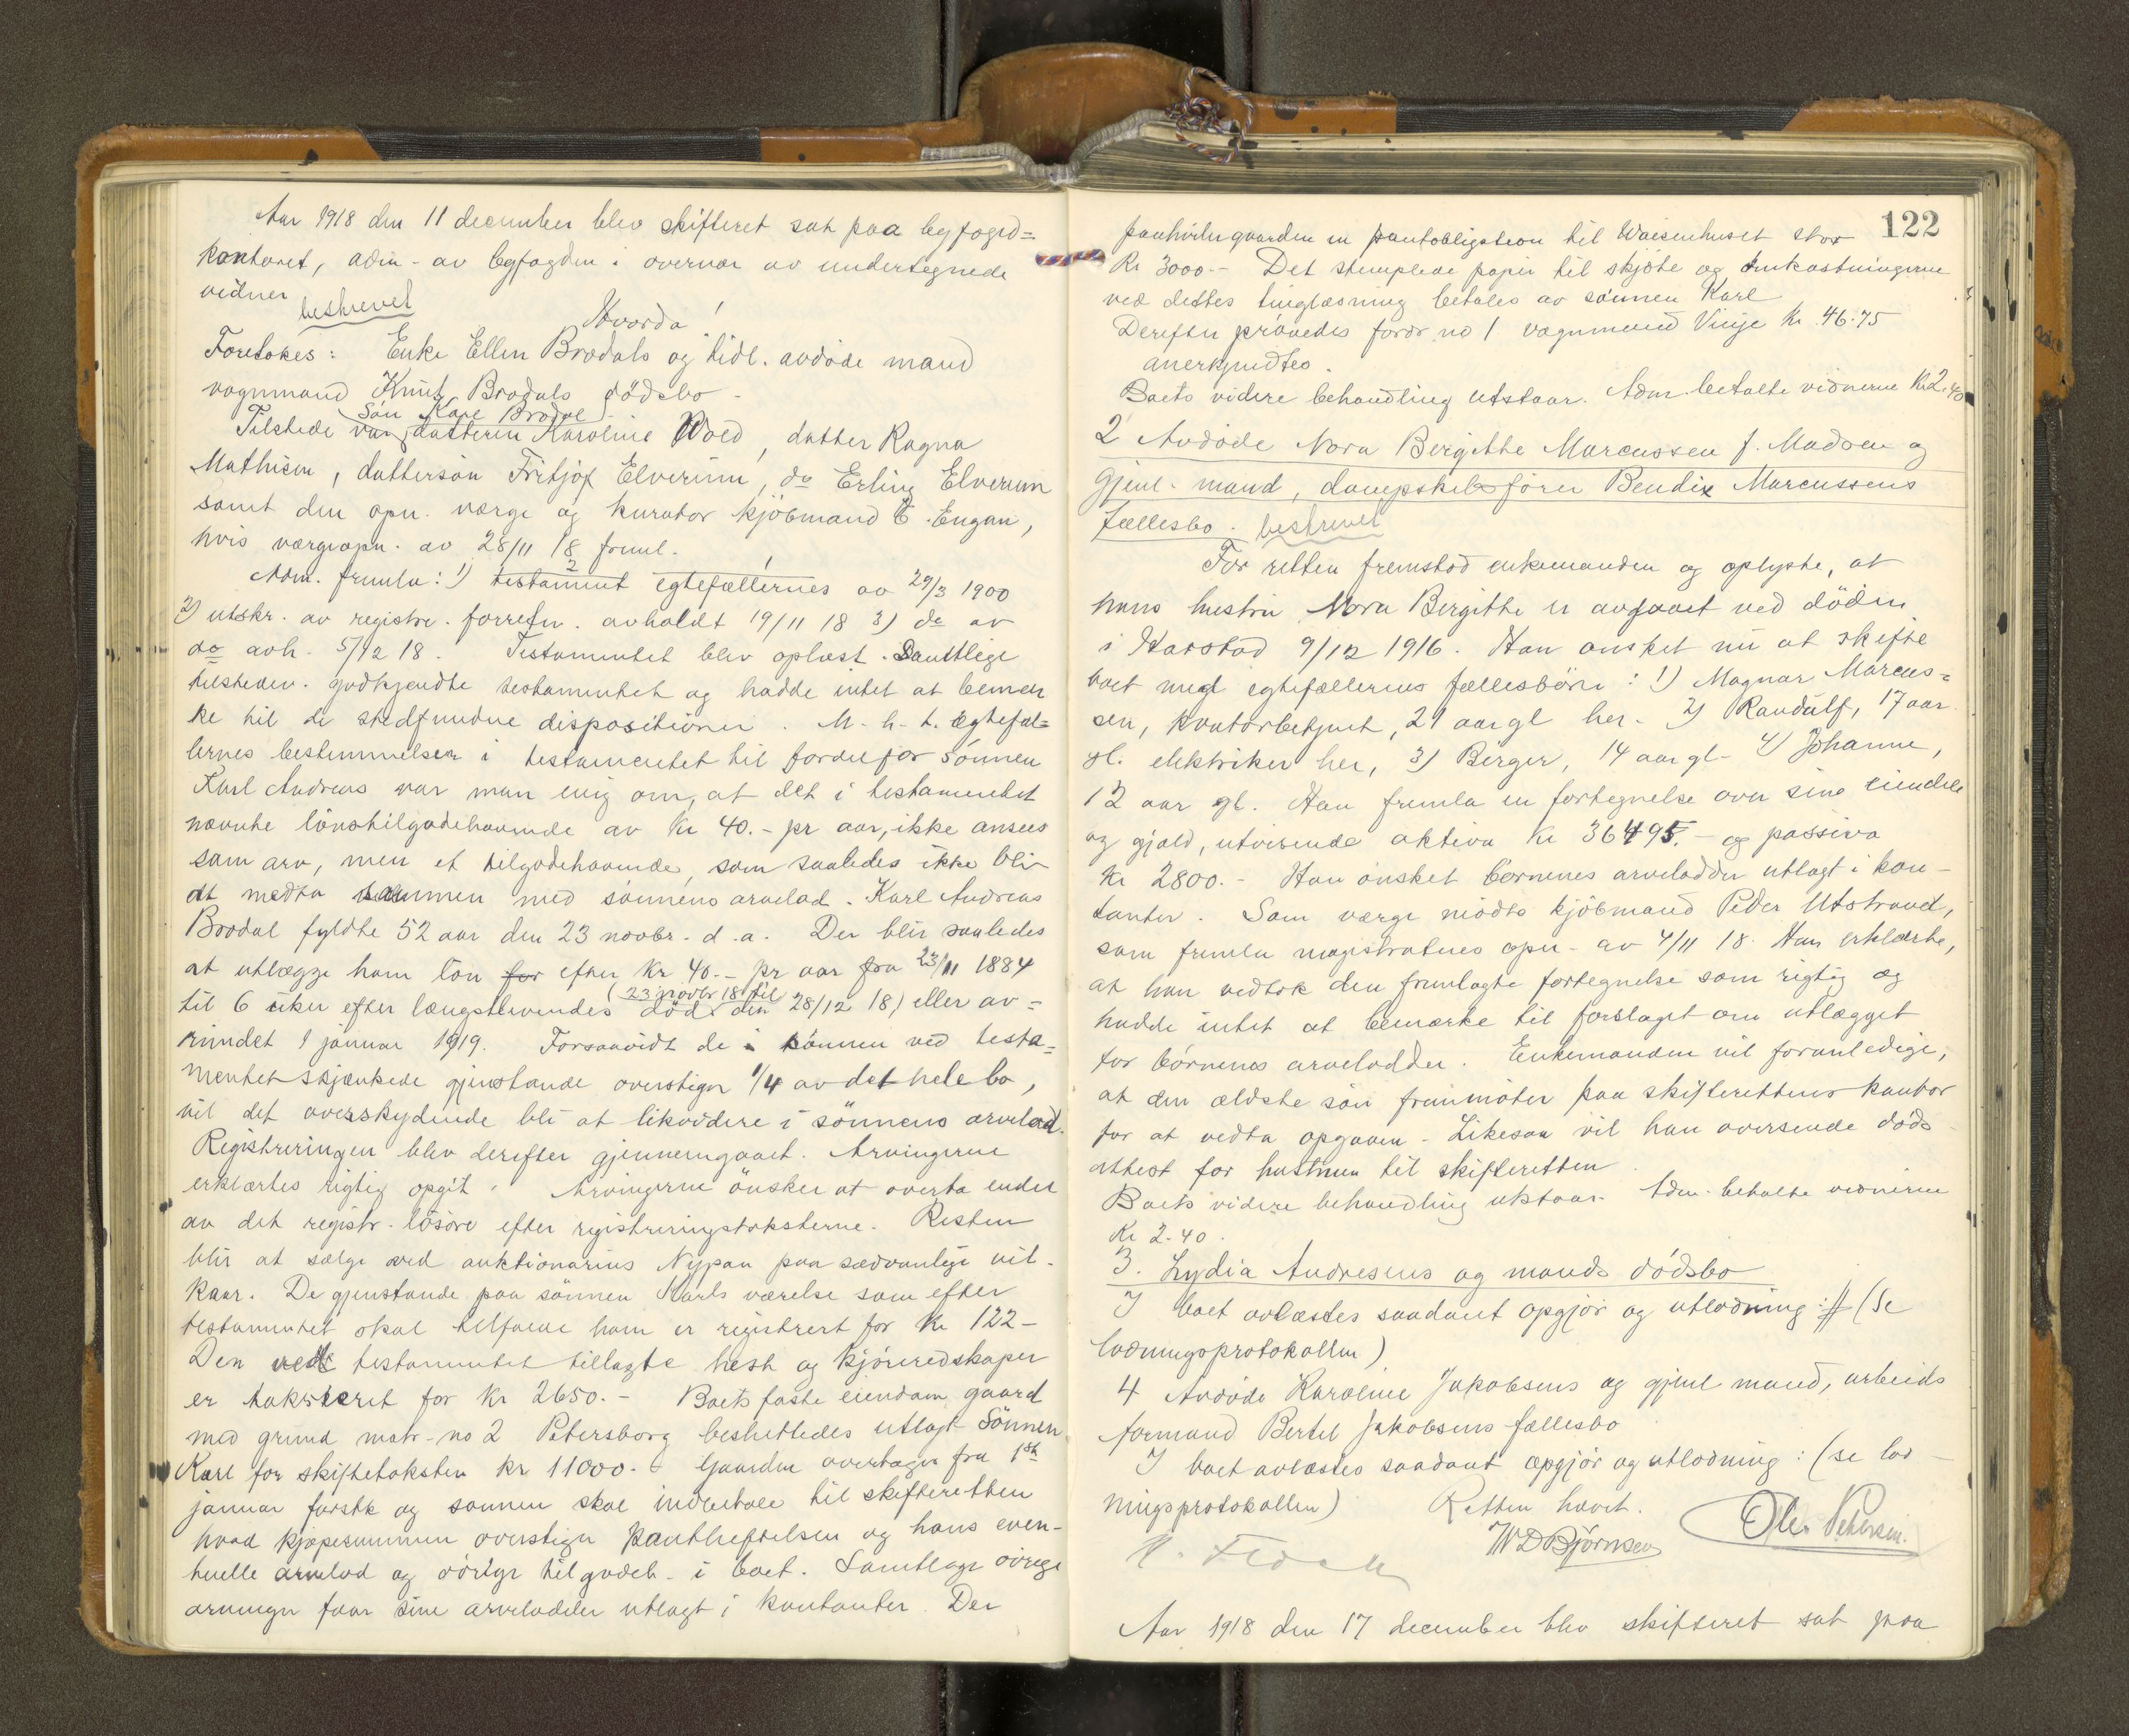 Aar 1918 den 11 december blev skifteret sat paa byfogd=
kontoret, adm. av byfogden i overvær av undertegnede
vidner
beskrevet
Hvorda!
Foretokes: Enke Ellen Brodals og tidl. avdøde mand
vognmand Knut Brodals dødsbo.
Søn Karl Brodal
Tilstede var datteren Karoline Wold, datter Ragna
Mathisen, dattersøn Fritjof Elverum, do Erling Elverum
samt den opn. værge og kurator kjøbmand E. Engan,
hvis værgeopn. av 28/11 18 freml.
Adm. fremla: 1) 2 testament egtefællernes av 29/3 1900
2) utskr. av registr. forretn. avholdt 19/11 18 3) do av
do avh. 5/12 18. Testamentet blev oplæst. Samtlige
tilstedev. godkjendte testamentet og hadde intet at bemer
ke til de stedfundne dispositioner. M. h. t. egtefæl=
lernes bestemmelser i testamentet til fordel for sønnen
Karl Andreas var man enig om, at det i testamentet
nævnte lønstilgodehavende av Kr 40.- pr aar, ikke ansees
som arv, men et tilgodehavende, som saaledes ikke bli-
at medta sammen med sønnens arvelod. Karl Andreas
Brodal fyldte 52 aar den 23 novbr. d.a. Der blir saaledes
at utlægge ham løn for efter kr 40.- pr aar fra 23/11 1884
(23 novbr 18 til
til 6 uker efter længstlevendes død den 28/12 18) eller av=
rundet 1 januar 1919. Forsaavidt de sønnen ved testa=
mentet skjænkede gjenstande overstiger 1/4 av det hele bo,
vil det overskydende bli at likvidere i sønnens arvelod.
Registreringen blev derefter gjennemgaaet. Arvingerne
erklærtes rigtig opgit. Arvingerne ønsker at overta endel
av det registr. løsøre efter registreringstaksterne. Resten
blir at sælge ved auktionarius Nypan paa sædvanlige vil-
kaar. De gjenstande paa sønnen Karls værelse som efter
testamentet skal tilfalde ham er registrert for Kr 122-
Den ved testamentet tillagte hest og kjøreredskaper
er taksteret for Kr 2650.- Boets faste eiendom gaard
med grund matr-no 2 Petersborg besluttedes utlagt sønnen
Karl for skiftetaksten kr 11000.- Gaarden overtages fra 1ste
januar førstk og sønnen skal indbetale til skifteretten
hvad kjøpesummen overstiger pantheftelsen og hans even-
tuelle arvelod og øvrige tilgodeh. i boet. Samtlige øvrige
arvinger faar sine arvelodder utlagt i kontanter. Der
122
paahviler gaarden en pantobligation til Waisenhuset stor
Kr 3000.- Det stemplede papir til skjøte og omkostningerne
ved dettes tinglæsning betales av sønnen Karl
Derefter prøvedes fordr. no 1 vognmand Vinje kr 46.75
anerkjendtes.
Boets videre behandling utstaar. Adm. betalte vidnerne Kr 2.40
2 Avdøde Nora Bergitte Marcussen f. Madsen og
gjenl. mand, dampskibsfører Bendix Marcussens
fællesbo. beskrevet
For retten fremstod enkemanden og oplyste, at
hans hustru Nora Bergitte er avgaaet ved døden
i Harstad 9/12 1916. Han ønsket nu at skifte
boet med egtefællernes fællesbørn: 1) Magnar Marcus=
sen, kontorbetjent, 21 aar gl her. 2) Randulf, 17 aar
gl. elektriker her, 3) Birger, 14 aar gl. 4) Johanne,
12 aar gl. Han fremla en fortegnelse over sine eiendele
og gjæld, utvisende aktiva Kr 36495.- og passiva
Kr 2800.- Han ønsket børnenes arvelodder utlagt i kon-
tanter. Som værge mødte kjøbmand Peder Utstrand,
som fremla magistratens opn. av 4/11 18. Han erklærte,
at han vedtok den fremlagte fortegnelse som rigtig og
hadde intet at bemærke til forslaget om utlægget
for børnenes arvelodder. Enkemanden vil foranledige,
at den ældste søn fremmøter paa skifterettens kontor
for at vedta opgaven. Likesaa vil han oversende døds
attest for hustruen til skifteretten.
Boets videre behandling utstaar. Adm. betalte vidnerne
Kr 2.40.
3. Lydia Andresens og mands dødsbo
I boet avlæstes saadant opgjør og utlodning: (se
lodningsprotokollen)
4 Avdøde Karoline Jakobsens og gjenl mand, arbeids
formand Bertel Jakobsens fællesbo
I boet avlæstes saadant opgjør og utlodning: (se lod-
ningsprotokollen) Retten hævet.
W D Bjørnsen Ole Petersen.
Aar 1918 den 17 december blev skifteret sat paa